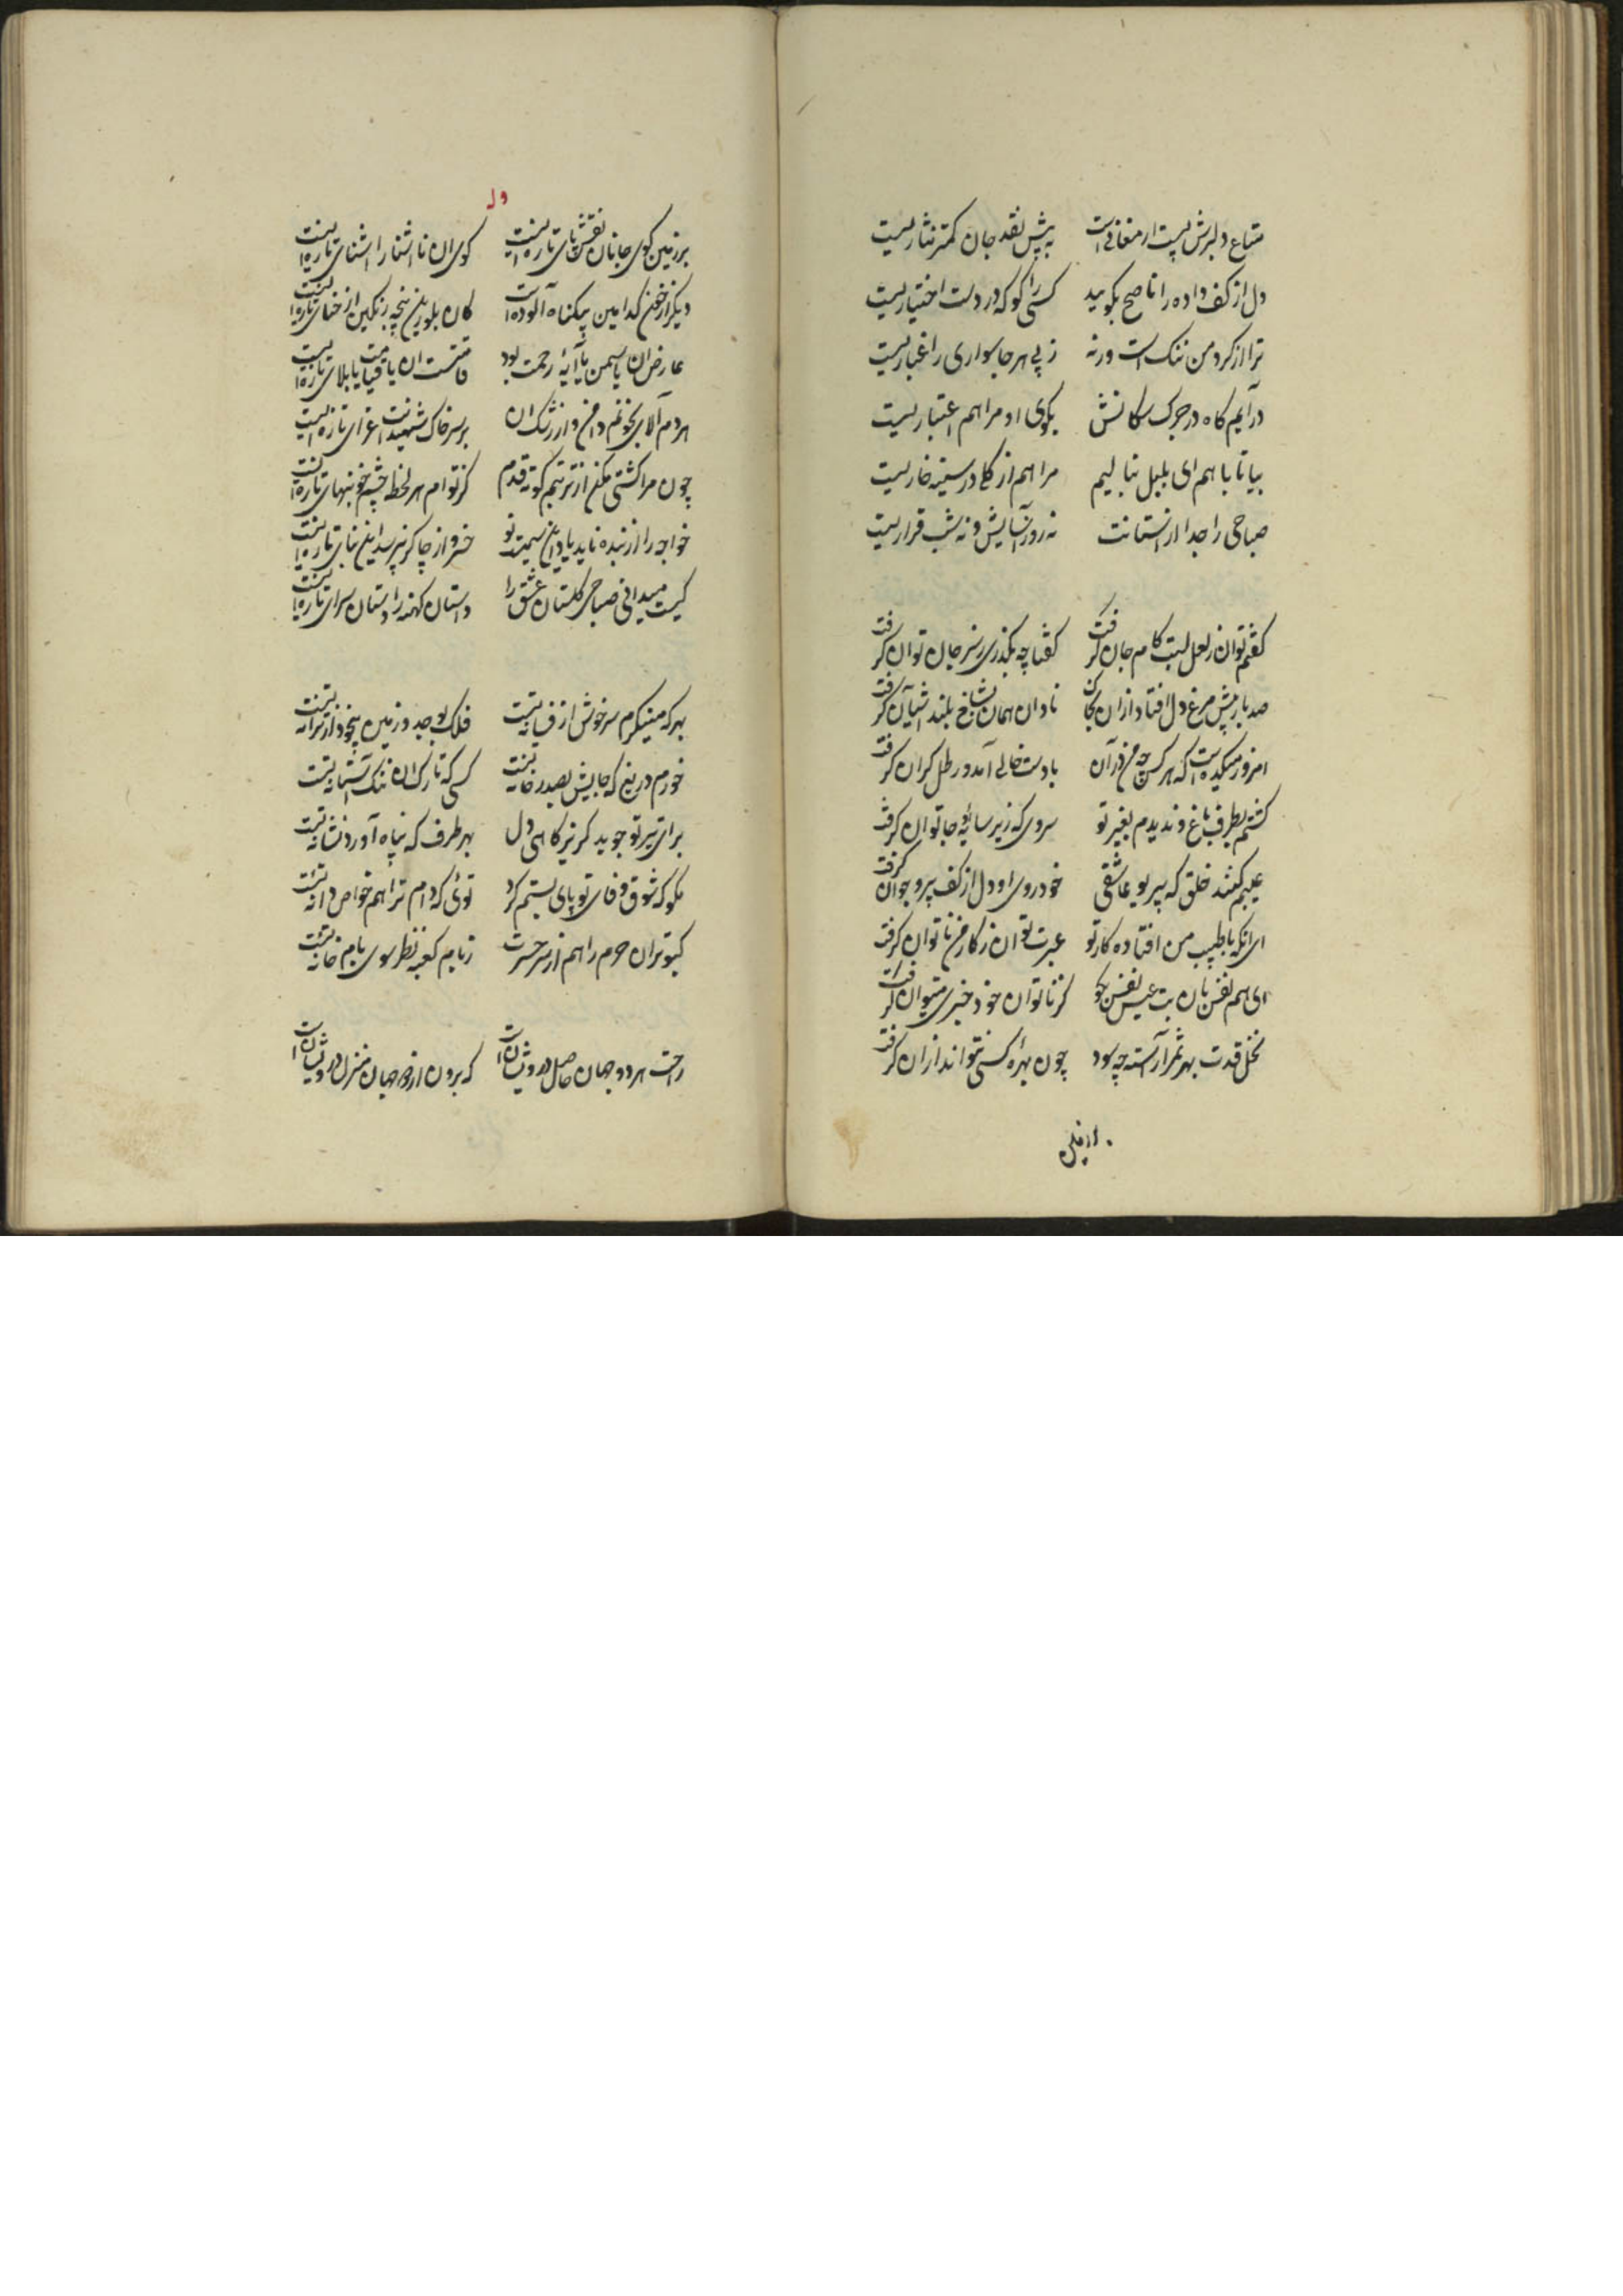 متاع دلبرش پیست ارمغانی است به پیش نقد جان کمتر نثاریست
دل از کف داده را ناصح بگویید کسی را کو که در دست اختیاریست
ترا از کرد من ننک است ورنه ز پی هر جا سواری را غباریست
در آیم کاه در جرک سکانش بکوی او مرا هم اعتباریست
بیا تا با هم ای بلبل بنالیم مرا هم از کلی در سینه خاریست
صباحی را جدا از آستانت نه روز آسایش و نه شب قراریست
کفتم توان ز لعل لبت کام جان کرفت کفتا چه بکذری ز سر جان توان کرفت
صد بار پیش مرغ دل افتاد از ان بجان نادان همان بشاخ بلند آشیان کرفت
امروز میکده است که هر کس چه من در آن با دست خالی آمد و رطل کران کرفت
کشتم بطرف باغ و ندیدم بغیر تو سروی که زیر سایه او جا توان کرفت
عیبم کنند خلق که پیر یو عاشقی خود روی او دل از کف پیر و جوان کرفت
ای آنکه با طبیب من افتاده کار تو عبرت توان ز کار من ناتوان کرفت
ای هم نفس بان بت عیسی نفس بکو کز ناتوان خود خبری میتوان کرفت
نخل قدت بهر ثمر آراسته چه سود چون بهره کسی نتواند از آن کرفت
بر زمین کوی جانان نقش پای تازه ایست کوی ان نا آشنا را آشنای تازه ایست
دیکر از خون کدامین بیکناه آلوده است کان بلورین پنجه رنکین از حنای تازه ایست
عارض ان یا سمن یا آیه رحمت بود قامتست ان یا قیامت یا بلای تازه ایست
هر دم آلای بخونم دامن و از رشک ان بر سر خاک شهیدانت عزای تازه ایست
چون مرا کشتی مکن از تربتم کوته قدم کز توام هر لحظه چشم خونبهای تازه ایست
خواجه را از بنده ناید یاد این سیمت نو خسرو از چاکر نپرسد این بنای تازه ایست
کیست میدانی صباحی کلستان عشق را داستان کهنه را دستان سرای تازه ایست
بهر که مینکرم سرخوش از فسانه تست فلک بوجد و زمین بیخود از ترانه تست
خورم دریغ که جایش بصدر خانه تست کسی که تارک ان ننک آستانه تست
برای تیر تو جوید کریزکاهی دل بهر طرف که پناه آورد نشانه تست
بکو که شوق وفای تو پای بستم کرد توئی که دام ترا هم خواص دانه تست
کبوتران حرم را هم از سر حسرت ز بام کعبه نظر سوی بام خانه تست
راحت هر دو جهان حاصل درویشان است که برون از دو جهان منزل درویشان است